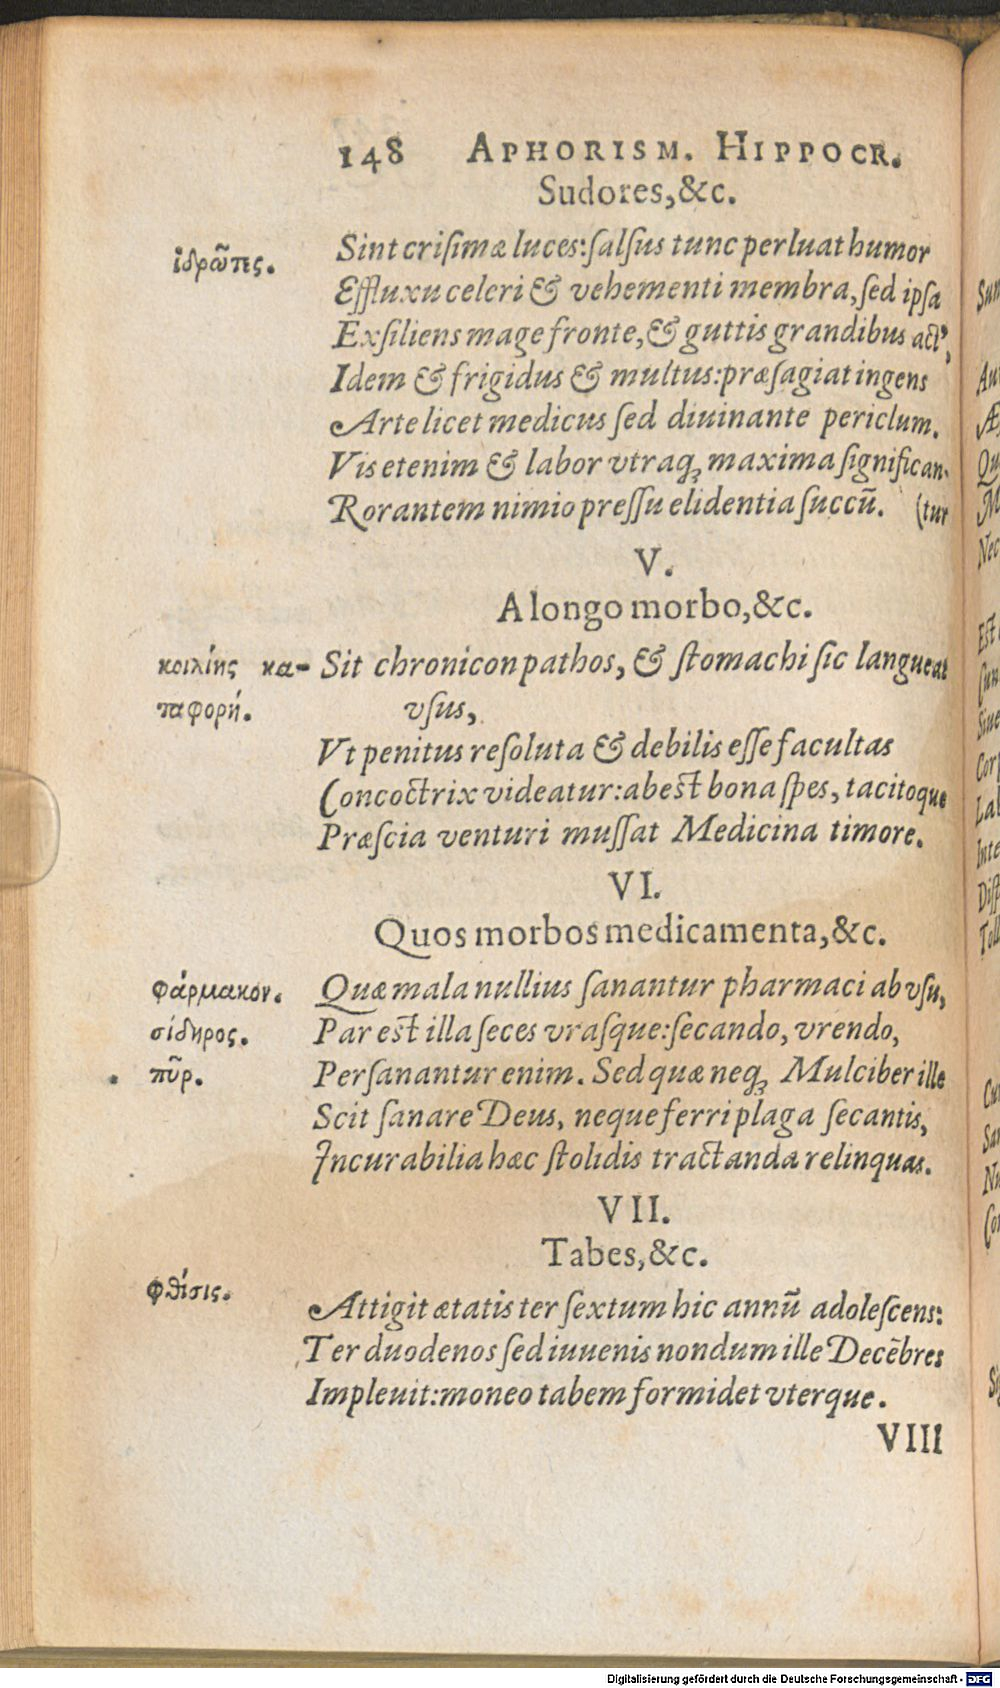 148 APHORISM. HIPPOCR.
Sudores,&c.
ἱδρῶτες.
Sint crisimæ luces:ſalſus tunc perluat humor
Effluxu celeri & vehementi membra,ſed ipſa
Exſiliens mage fronte,& guttis grandibus act⁹,
Idem & frigidus & multus:præſagiat ingens
Arte licet medicus ſed diuinante periclum.
Vis etenim & labor vtraq; maxima ſignifican-
Rorantem nimio preſſu elidentia ſuccū. (tur
V.
A longo morbo,&c.
κοιλίης κα- Sit chronicon pathos, & ſtomachi ſic langueat
ταφορή. vſus,
Vt penitus reſoluta & debilis eſſe facultas
Concoctrix videatur:abest bona ſpes, tacitoque
Præſcia venturi muſſat Medicina timore.
VI.
Quos morbos medicamenta,&c.
φάρμακον. Quæ mala nullius ſanantur pharmaci ab vſu,
σίδηρος. Par est illa ſeces vraſque:ſecando, vrendo,
πῦρ. Perſanantur enim. Sed quæ neq; Mulciber ille
Scit ſanare Deus, neque ferri plaga ſecantis,
Incurabilia hæc ſtolidis tractanda relinquas.
VII.
Tabes,&c.
φθίσις.
Attigit ætatis ter ſextum hic annū adoleſcens:
Ter duodenos ſed iuuenis nondum ille Decēbres
Impleuit:moneo tabem formidet vterque.
VIII
Digitalisierung gefördert durch die Deutsche Forschungsgemeinschaft - DFG